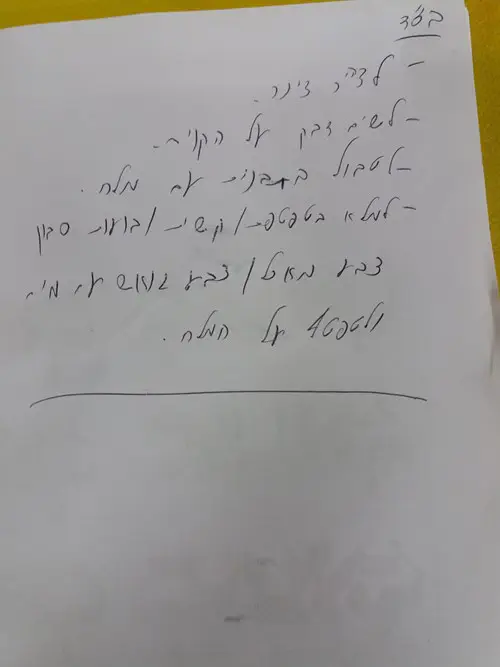 בס"ד
- לצייר ציור.
- לשים דבק על הקווים.
- לטבול בתבנית עם מלח.
- למלא בטפטפת / קשית / בועות סבון
צבע מאכל / צבע גואש עם מים
ולטפטף על המלח.